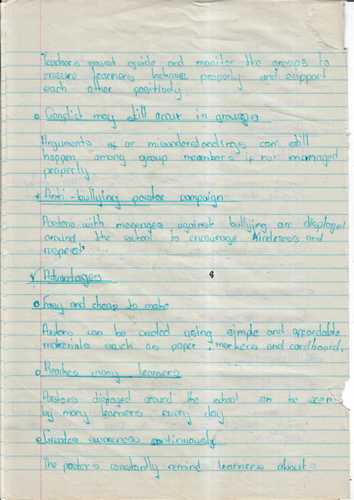 Teachers must guide and monitor the groups to
ensure learners behave properly and support
each other positively.
o Conflict may still occur in groups
Arguments of or misunderstandings can still
happen among group members if not managed
properly.
* Anti-bullying poster campaign
Posters with messages against bullying are displayed
around the school to encourage kindness and
respect.
Advantages
o Easy and cheap to make
Posters can be created using simple and affordable
materials such as paper, markers and cardboard.
o Reaches many learners
Posters displayed around the school can be seen
by many learners every day
o Creates awareness continuously
The posters constantly remind learners about